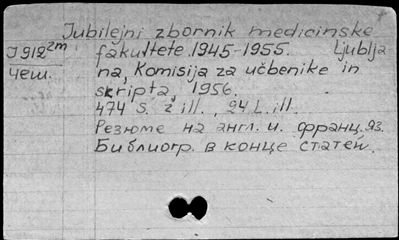 Jubilejni zbornik medicinske
J 912 2m fakultete 1945-1955. Ljublja
чеш. na, Komisija za učbenike in
skripta, 1956.
474 s. z ill., 24 L. ill.
Резюме на англ. и. франц. яз.
Библиогр. в конце статей.